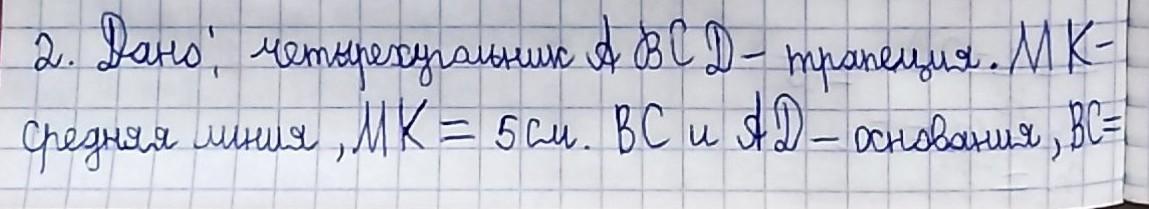 2. Дано: четырехугольник ABCD - трапеция. MK -
средняя линия, MK = 5 см. BC и AD - основания, BC =